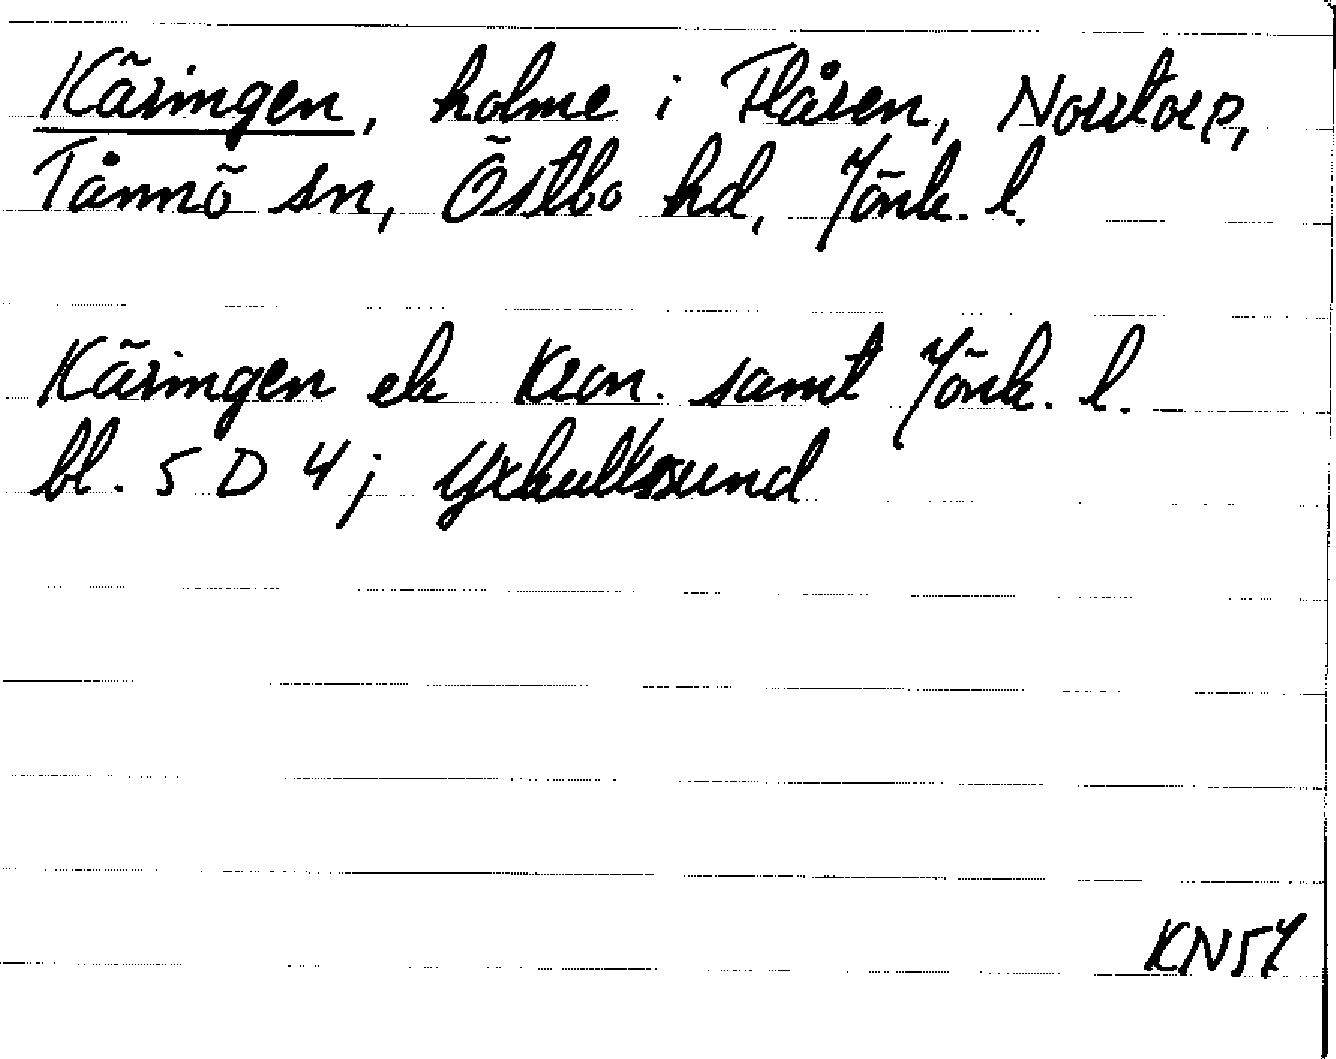 Käringen, holme i Flåren, Norrtorp,
Tånnö sn, Östbo hd, Jönk. l.
Käringen ek Kron. samt Jönk. l.
bl. 5 D 4; Yxkullssund
KN57